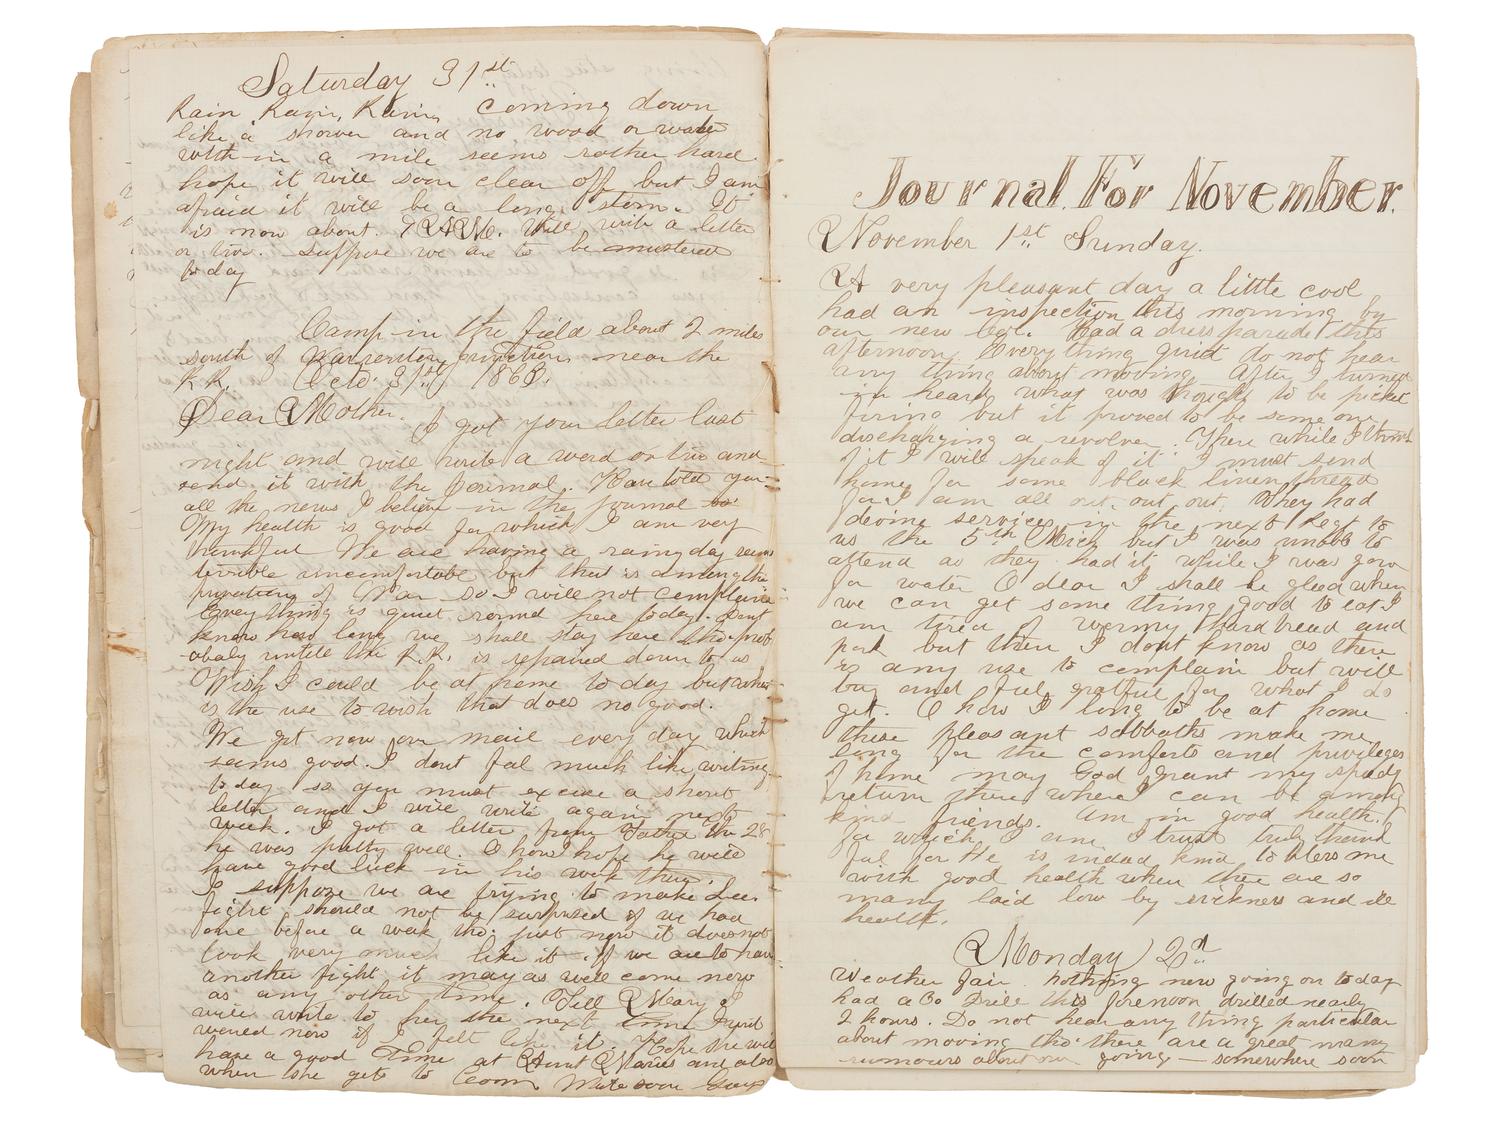 Saturday 31st
Rain, Rain, Rain, coming down
like a shower and no wood or water
with-in a mile seems rather hard
hope it will soon clear off but I am
afraid it will be a long storm. It
is now about 9 A.M. Will write a letter
or two. Suppose we are to be mustered
to day
Camp in the field about 2 miles
south of Warrenton Junction near the
R.R. Octo. 31st 1863.
Dear Mother. I got your letter last
night and will write a word or two and
send it with the Journal. Have told you
all the news I believe in the Journal
My health is good for which I am very
thankful We are having a rainy day seems
terrible uncomfortable but that is among the
privations of War so I will not complain
Every thing is quiet round here today. Dont
know how long we shall stay here tho. prob
abaly untill the R.R. is repaired down to us
Wish I could be at home to day but what
is the use to wish that does no good.
We get now our mail every day which
seems good. I dont feal much like writing
to day so you must excuse a short
letter and I will write again next
week. I got a letter from Father the 28
he was pretty well. O how I hope he will
have good luck in his work there.
I suppose we are trying to make Lee
fight should not be surprised if we had
one before a week tho. just now it does not
look very much like it. If we are to have
another fight it may as well come now
as any other time. Tell Mary I
will write to her the next time I
now if I felt like it. Hope she will
have a good time at Aunt Maries and also
when she gets to Write soon
Journal For November.
November 1st Sunday.
A very pleasant day a little cool
had an inspection this morning by
our new Col. Had a dress parade this
afternoon. Everything quiet do not hear
any thing about moving. After I turned
in heard what was thought to be picket
firing but it proved to be some one
discharging a revolver. There while I think
of it I will speak of it I must send
home for some black linen thread
for I am all out, out, out. They had
devine services in the next Regt to
us the 5th Mich but I was unable to
attend as they had it while I was gone
for water O dear I shall be glad when
we can get some thing good to eat I
am tired of wormy hard bread and
pork but then I dont know as there
is any use to complain but will
try and feel gratful for what I do
get. O how I long to be at home
these pleasant sabbaths make me
long for the comforts and privileges
of home may God grant my spedy
return there where I can be among
kind friends. Am in good health
for which I am I trust truly thank
ful for He is indead kind to bless me
with good health when there are so
many laid low by sickness and ill
health.
Monday 2nd
Weather fair. nothing new going on today
had a Co Drill this forenoon drilled nearly
2 hours. Do not hear any thing particular
about moving tho. there are a great many
rumours about our going — somewhere soon